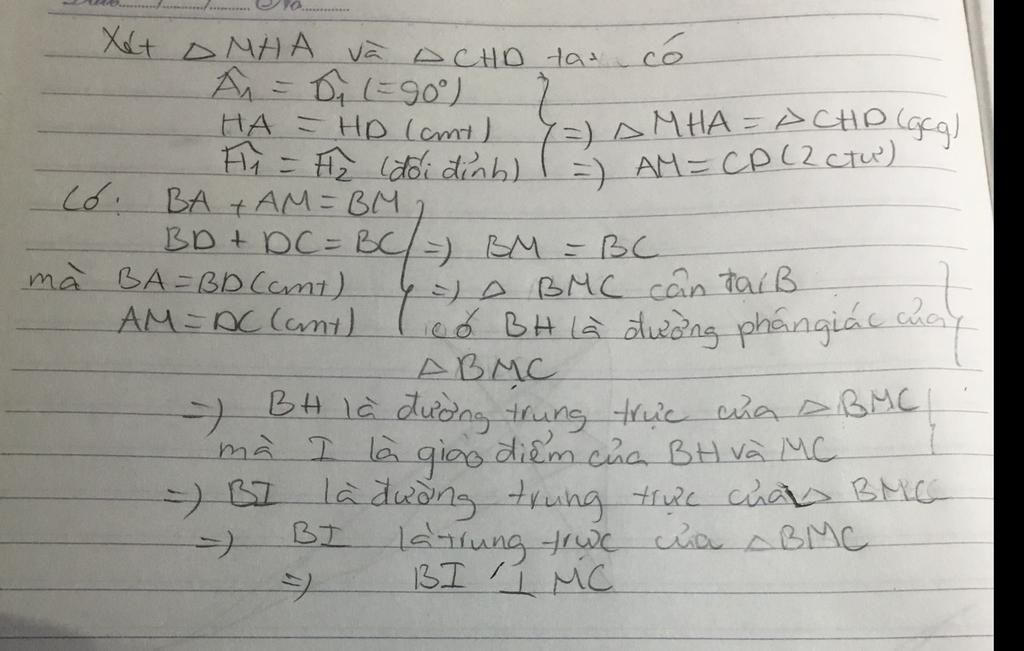 Xét △MHA và △CHD ta có
Â1 = D̂1 (=90°)
HA = HD (cmt) => △MHA = △CHD (gcg)
Ĥ1 = Ĥ2 (đối đỉnh) => AM = CD (2 ctư)
Có: BA + AM = BM
BD + DC = BC => BM = BC
mà BA = BD (cmt) => △ BMC cân tại B
AM = DC (cmt) có BH là đường phân giác của
△BMC
=> BH là đường trung trực của △BMC
mà I là giao điểm của BH và MC
=> BI là đường trung trực của △ BMC
=> BI là trung trực của △BMC
=> BI ⊥ MC